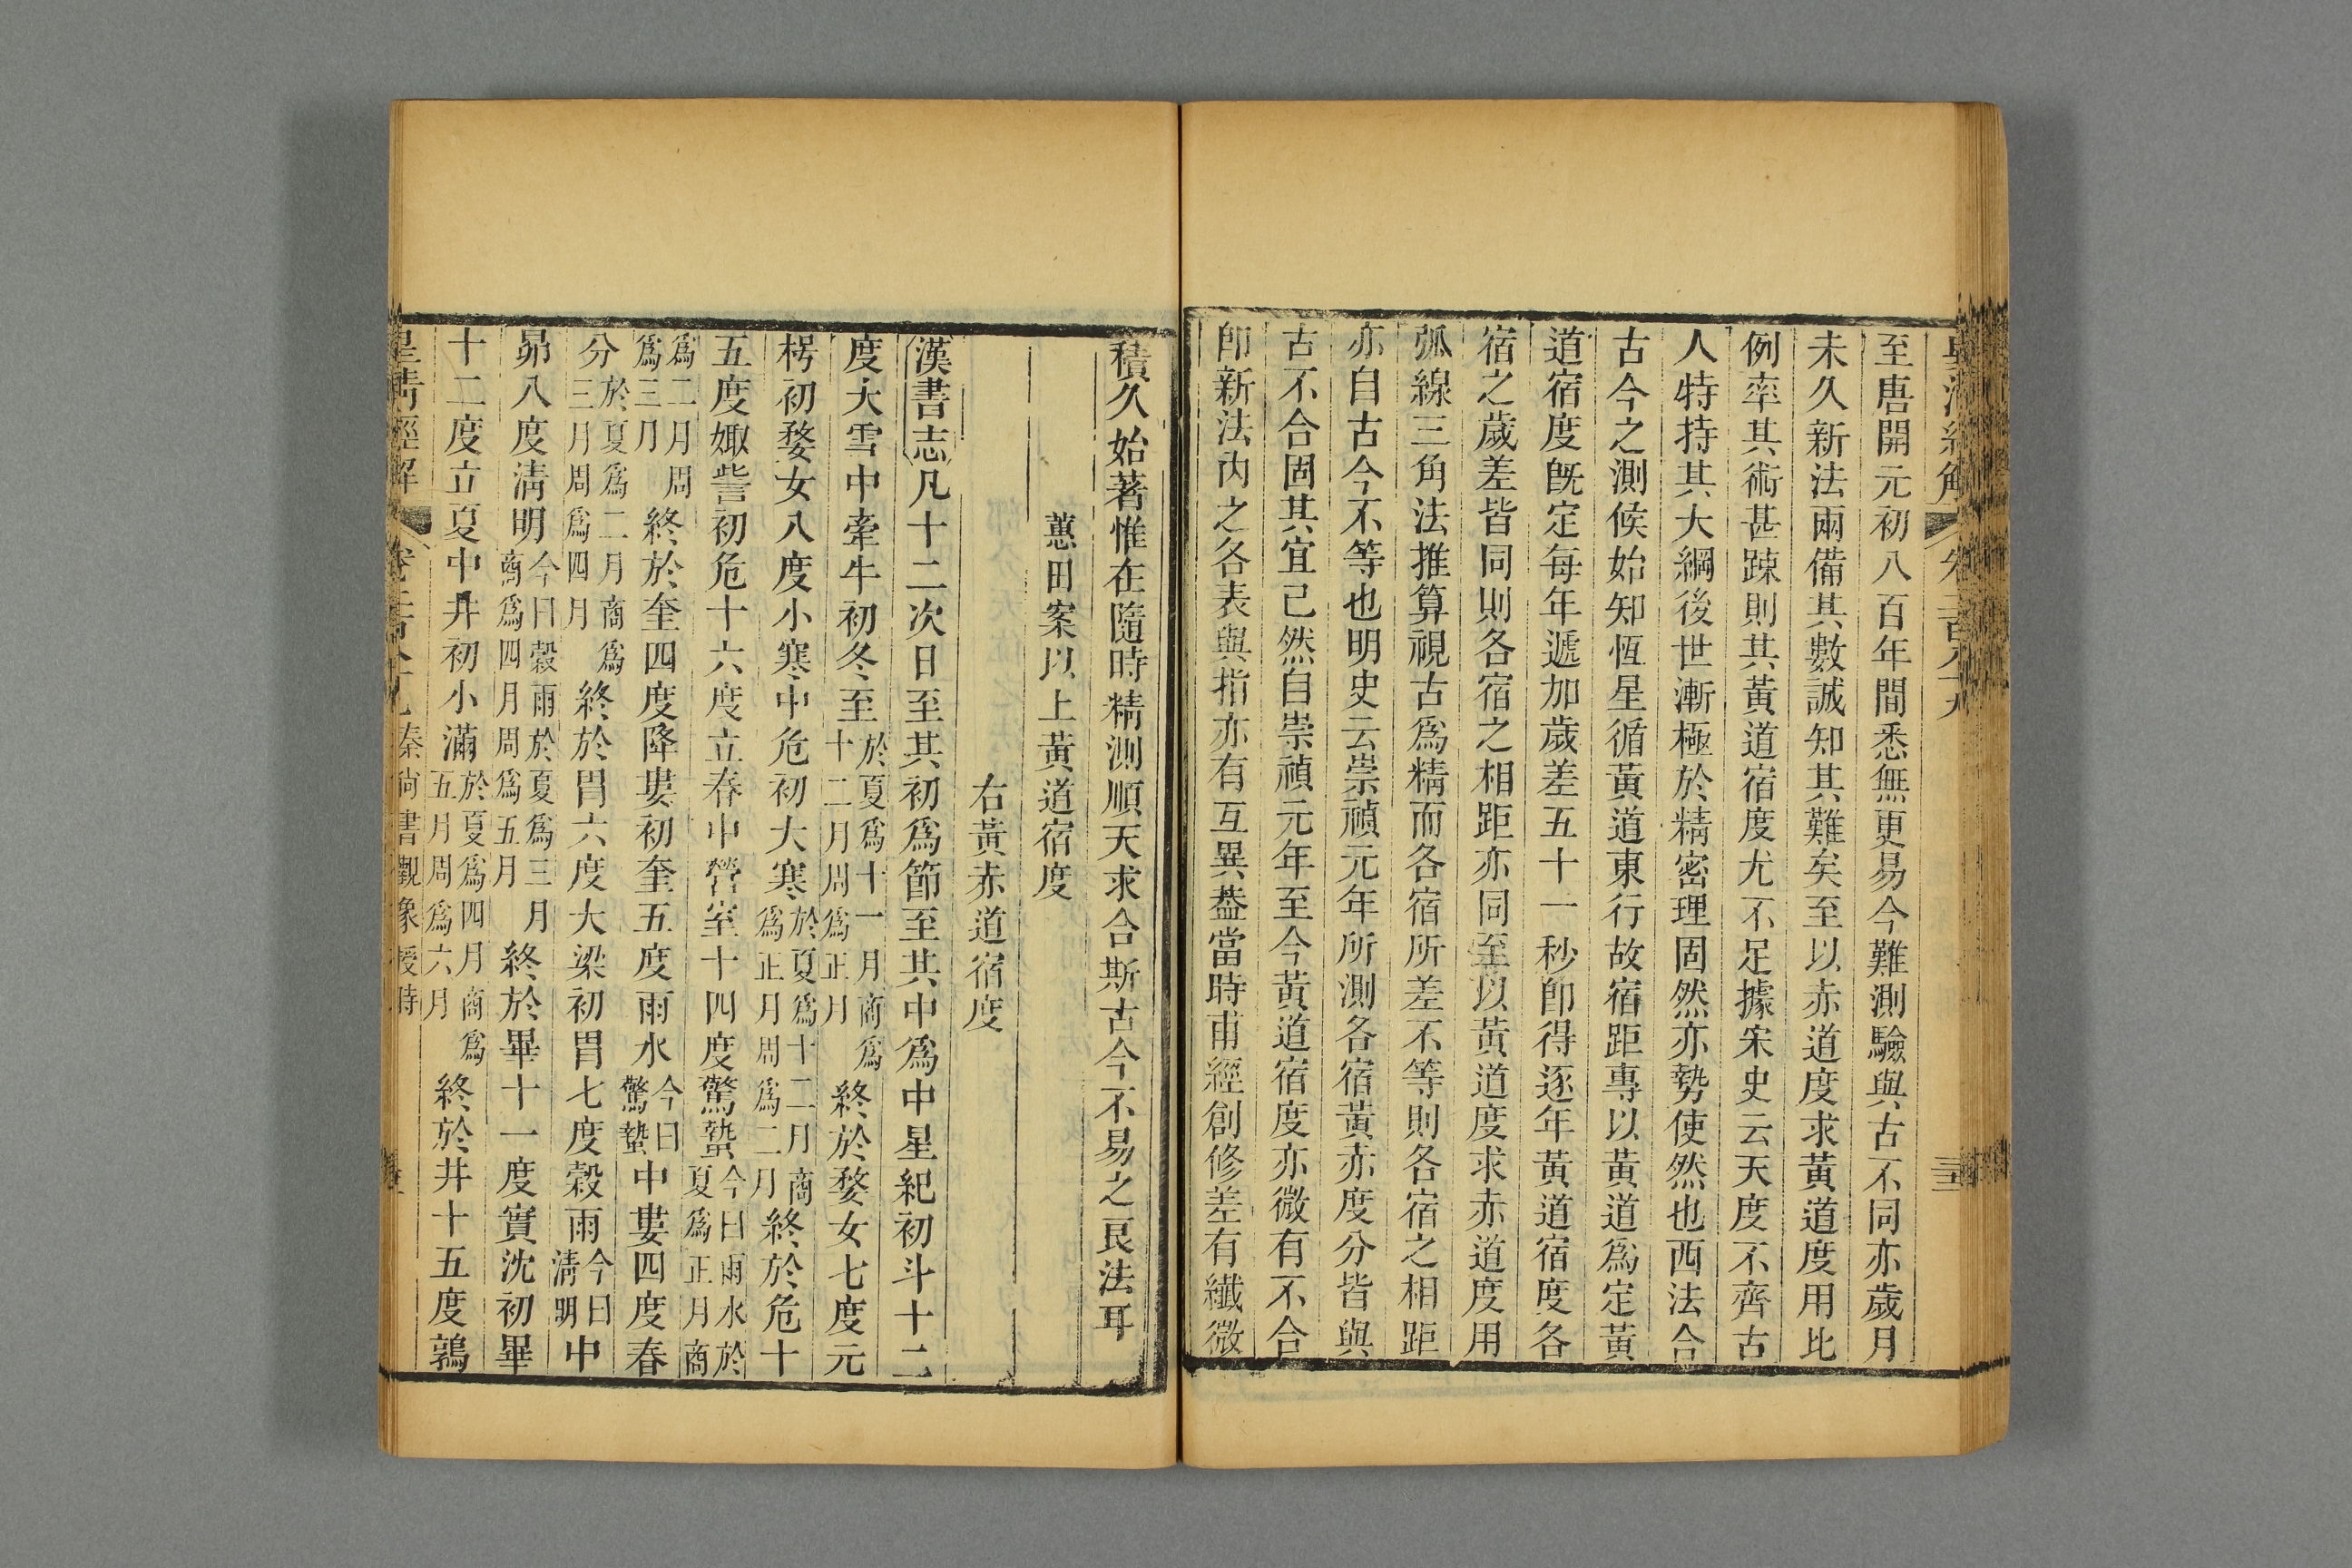 至唐開元初八百年間悉無更易今難測驗與古不同亦歲月
未久新法兩備其數誠知其難矣至以赤道度求黃道度用比
例率其術甚踈則其黃道宿度尤不足據宋史云天度不齊古
人特持其大綱後世漸極於精密理固然亦勢使然也西法合
古今之測候始知恆星循黃道東行故宿距專以黃道爲定黃
道宿度旣定每年遞加歲差五十一秒卽得逐年黃道宿度各
宿之歲差皆同則各宿之相距亦同至以黃道度求赤道度用
弧線三角法推算視古爲精而各宿所差不等則各宿之相距
亦自古今不等也明史云崇禎元年所測各宿黃赤度分皆與
古不合固其宜已然自崇禎元年至今黃道宿度亦微有不合
卽新法內之各表與指亦有互異葢當時甫經創修差有纖微
積久始著惟在隨時精測順天求合斯古今不易之良法耳
蕙田案以上黃道宿度
右黃赤道宿度
漢書志凡十二次日至其初爲節至其中爲中星紀初斗十二
度大雪中牽牛初冬至於夏爲十一月商爲十二月周爲正月終於婺女七度元
枵初婺女八度小寒中危初大寒於夏爲十二月商爲正月周爲二月終於危十
五度娵訾初危十六度立春中營室十四度驚蟄今曰雨水於夏爲正月商
爲二月周爲三月終於奎四度降婁初奎五度雨水今曰驚蟄中婁四度春
分於夏爲二月商爲三月周爲四月終於胃六度大梁初胃七度穀雨今曰淸明中
昴八度淸明今曰穀雨於夏爲三月商爲四月周爲五月終於畢十一度實沈初畢
十二度立夏中井初小滿於夏爲四月商爲五月周爲六月終於井十五度鶉